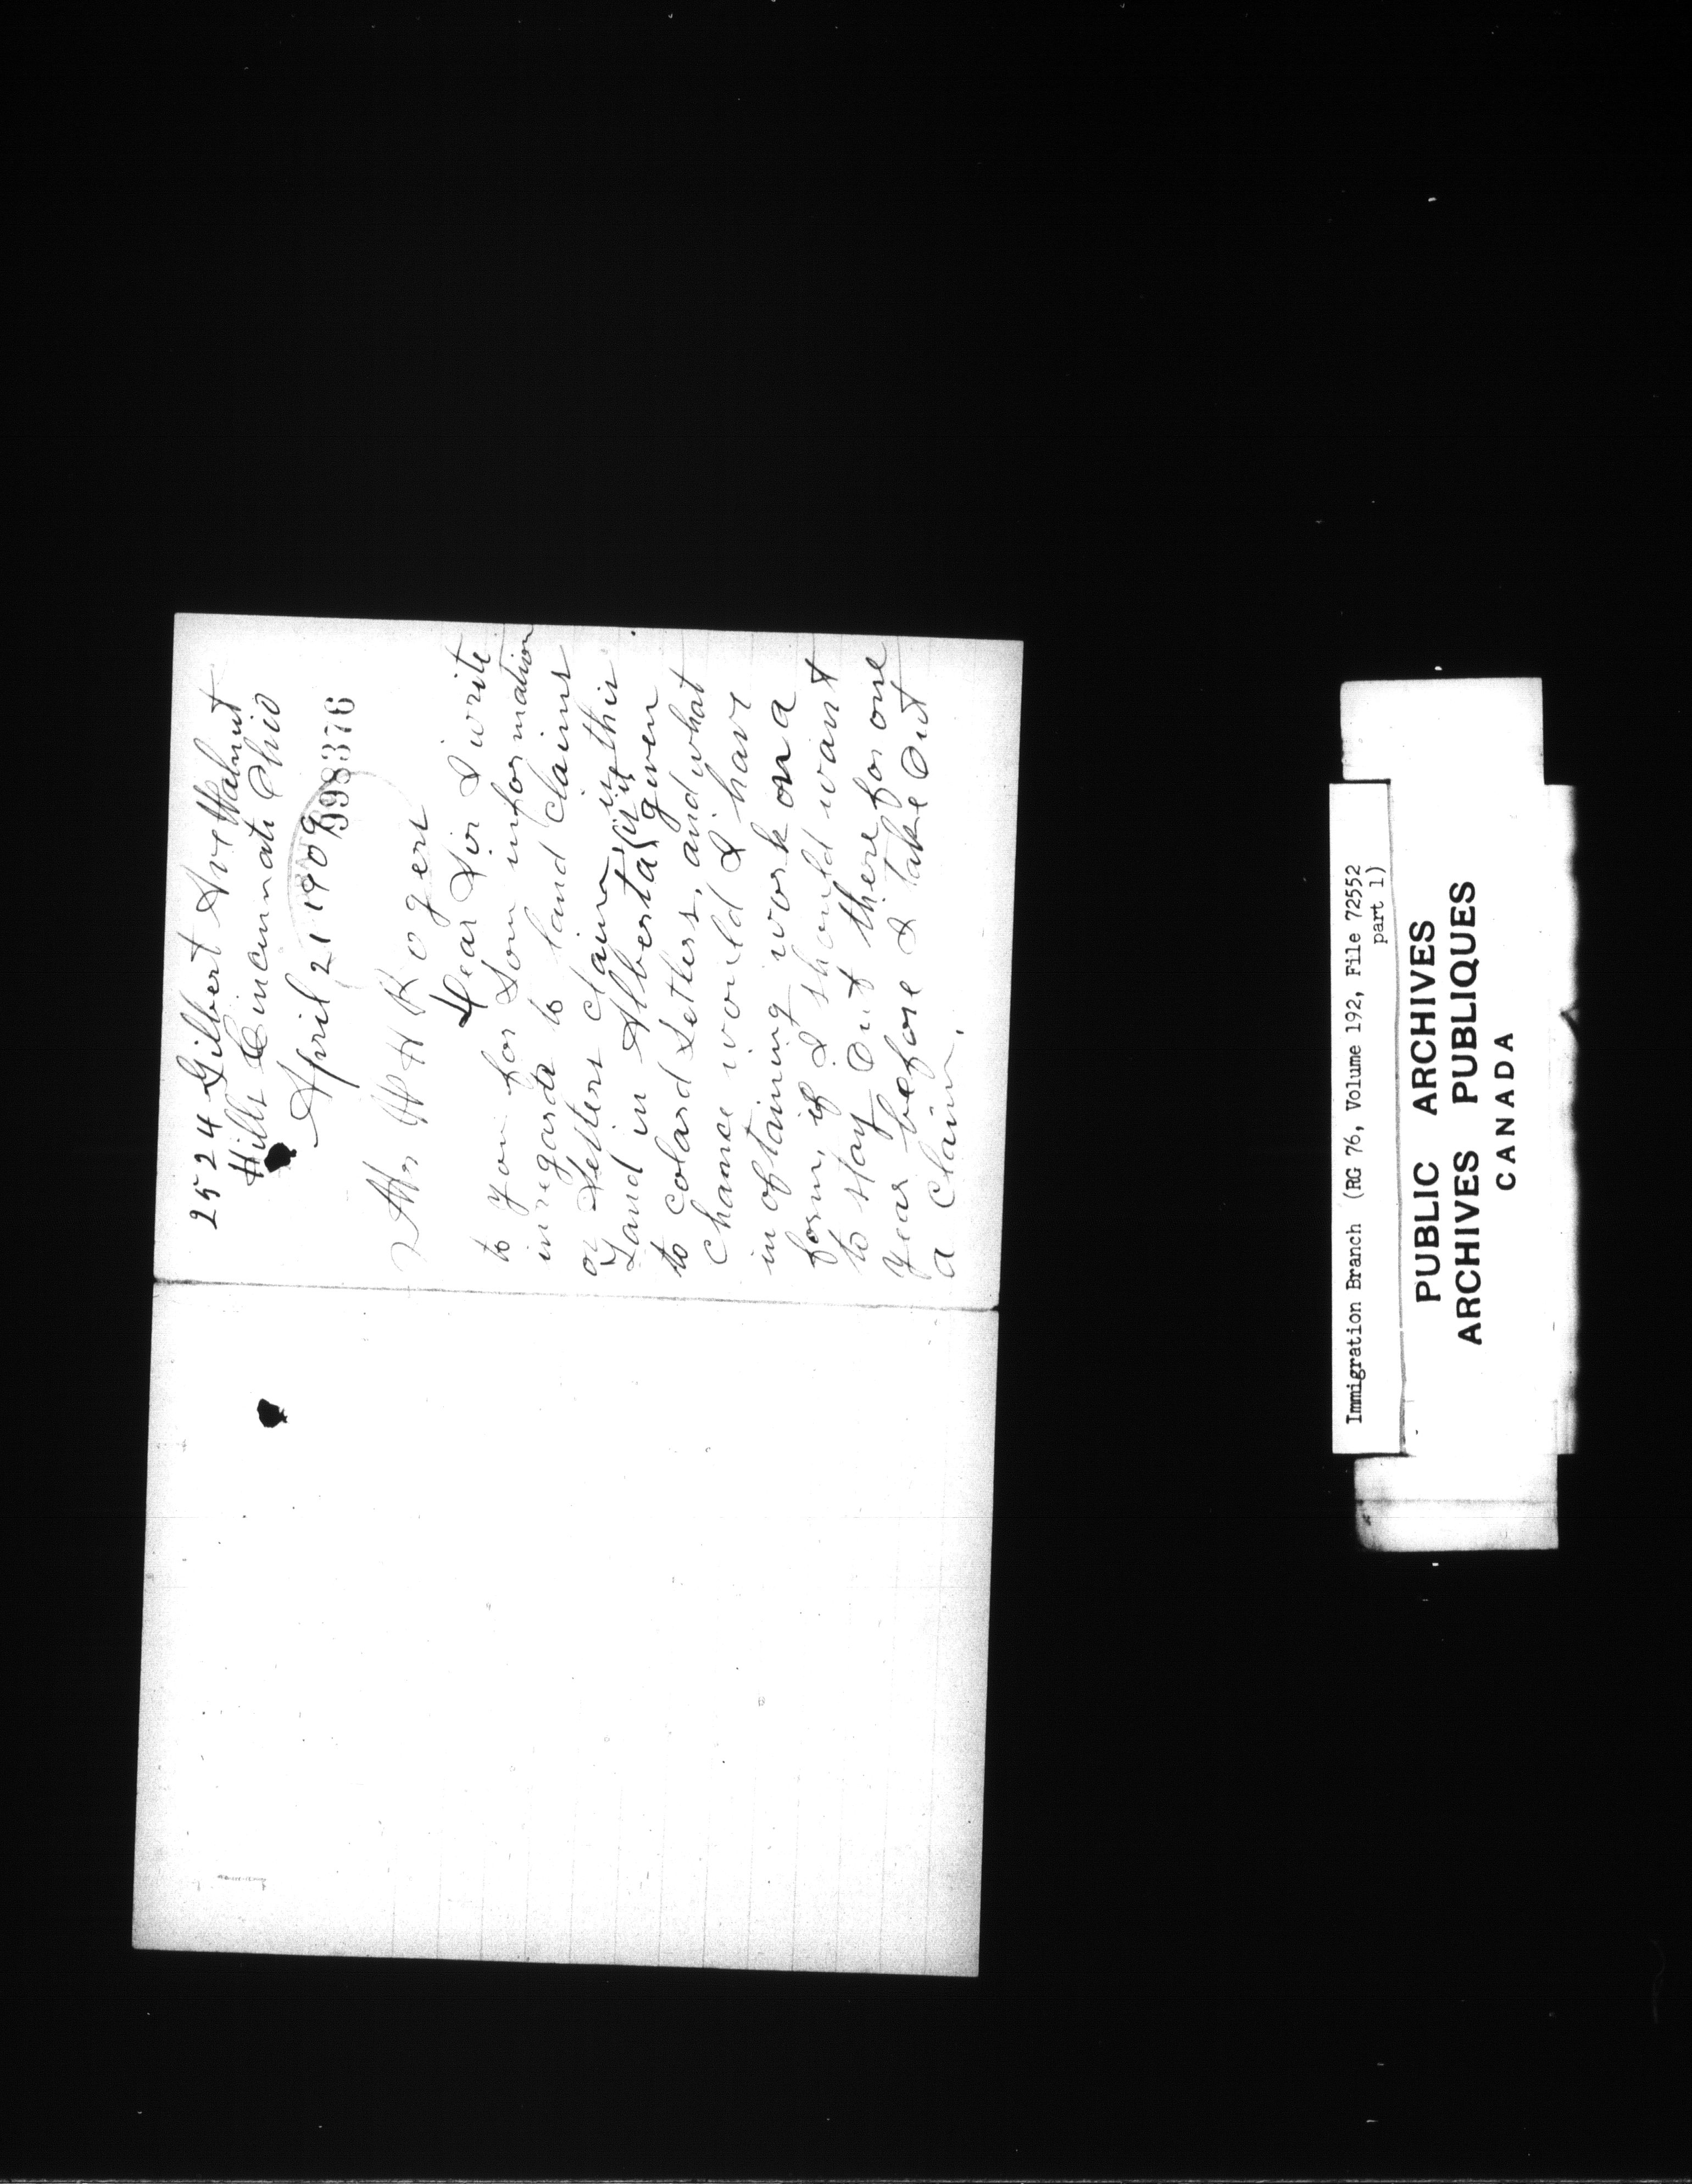 2524 Gilbert Ave Walnut
Hills Cincinnati Ohio
April 21 1909
998376
Mr W H Rogers
Dear Sir I write
to you for Some information
in regards to land claims
or Setlers claim, is this
Land in Alberta, is it given
to colard Setlers, and what
chance would I have
in obtaining work on a
form, if I should want
to stay Out there for one
year before I take Out
a claim.
Immigration Branch (RG 76, Volume 192, File 72552
part 1)
PUBLIC ARCHIVES
ARCHIVES PUBLIQUES
CANADA